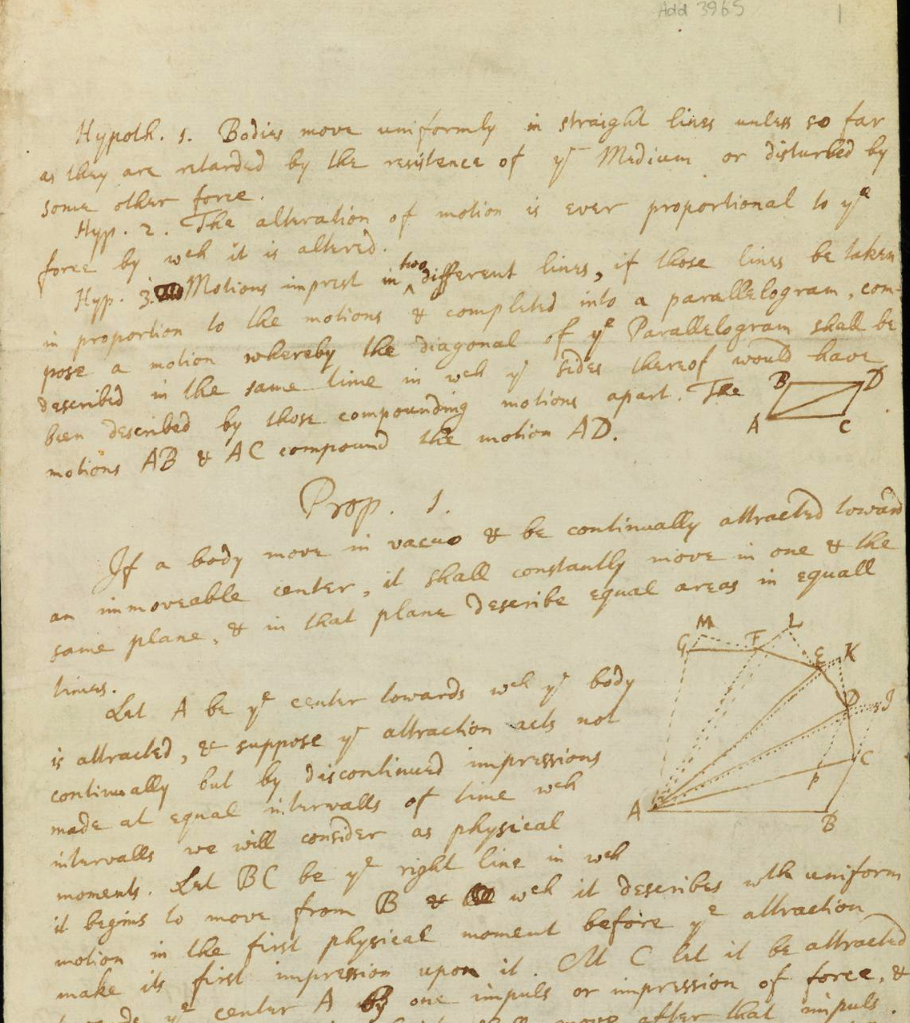 Add 3965
1
Hypoth. 1. Bodies move uniformly in straight lines unless so far
as they are retarded by the resistence of ye Medium or disturbed by
some other force.
Hyp. 2. The alteration of motion is ever proportional to ye
force by wch it is altered.
Hyp. 3. Motions imprest in two different lines, if those lines be taken
in proportion to the motions & completed into a parallelogram, com-
pose a motion whereby the diagonal of ye Parallelogram shall be
described in the same time in wch ye sides thereof would have
been described by those compounding motions apart. The
motions AB & AC compound the motion AD.
B D
A C
Prop. 1.
If a body move in vacuo & be continually attracted toward
an immoveable center, it shall constantly move in one & the
same plane, & in that plane describe equal areas in equall
times.
M L
G F E K
D I
C
P
A B
Let A be ye center towards wch ye body
is attracted, & suppose ye attraction acts not
continually but by discontinued impressions
made at equal intervalls of time wch
intervalls we will consider as physical
moments. Let BC be ye right line in wch
it begins to move from B & wch it describes wth uniform
motion in the first physical moment before ye attraction
make its first impression upon it. At C let it be attracted
ye center A by one impuls or impression of force, &
move after that impuls.